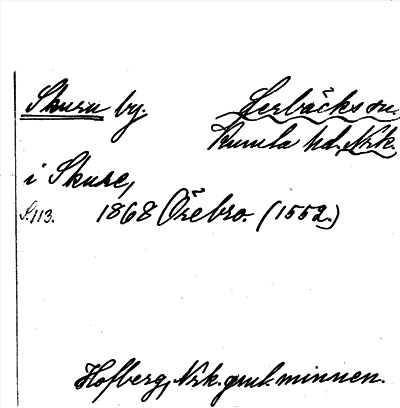 Skuru by. Lerbäcks sn.
Kumla hd. Nrk.
i Skure,
S.113. 1868 Örebro. (1552.)
Hofberg, Nrk. gml. minnen.